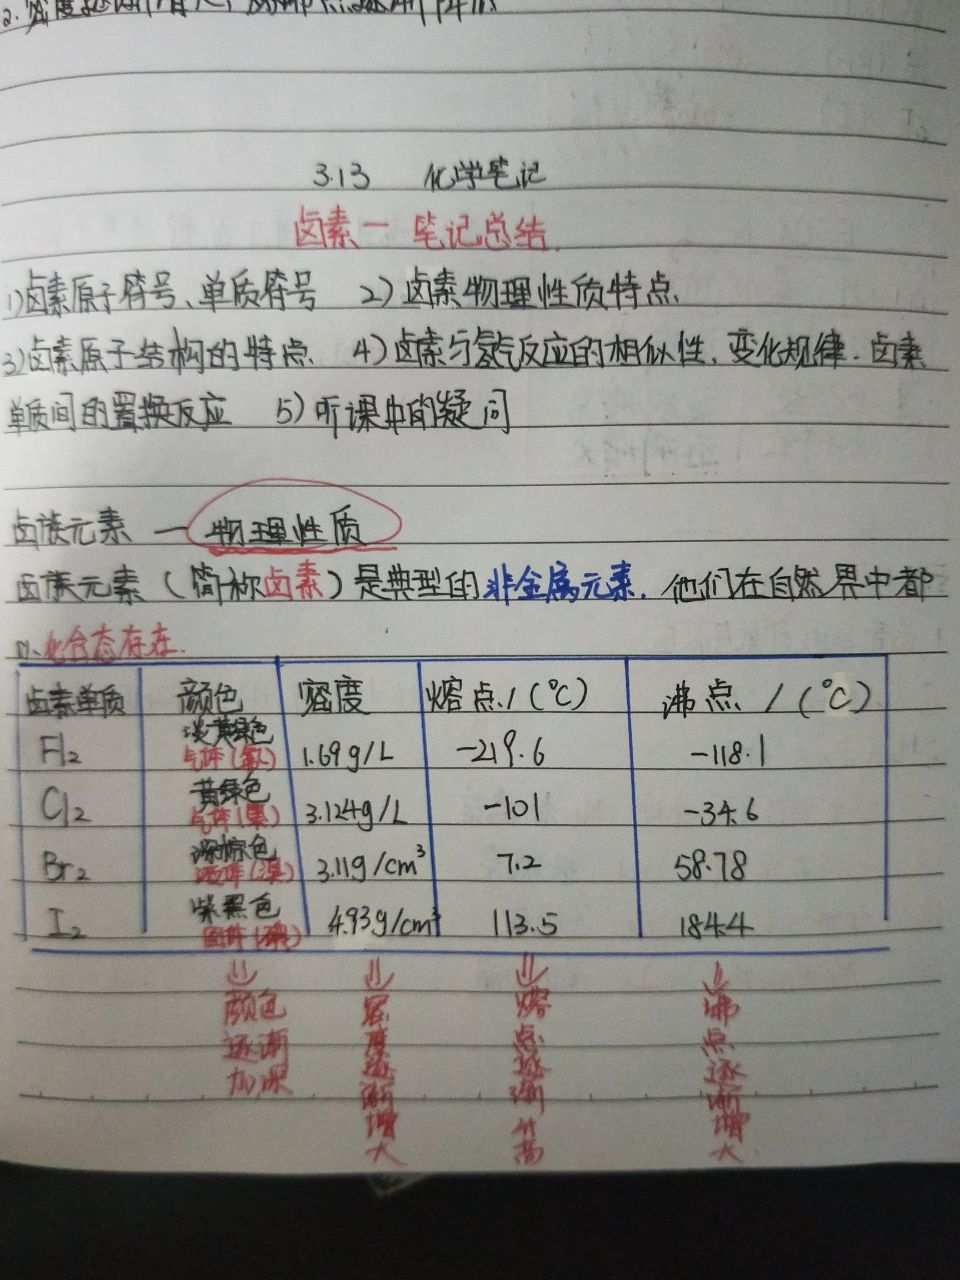 3.13 化学笔记
卤素一 笔记总结.
1)卤素原子符号、单质符号 2)卤素物理性质特点.
3)卤素原子结构的特点. 4)卤素与氢气反应的相似性、变化规律.卤素
单质间的置换反应 5)听课中的疑问
卤族元素 — 物理性质
卤族元素(简称卤素)是典型的非金属元素.他们在自然界中都
以化合态存在.
卤素单质 颜色 密度 熔点/(℃) 沸点/(℃)
Fl2 淡黄绿色气体(氟) 1.69g/L -219.6 -118.1
Cl2 黄绿色气体(氯) 3.124g/L -101 -34.6
Br2 深棕色液体(溴) 3.119/cm³ 7.2 58.78
I2 紫黑色固体(碘) 4.93g/cm³ 113.5 184.4
颜色逐渐加深
密度逐渐增大
熔点逐渐升高
沸点逐渐增大